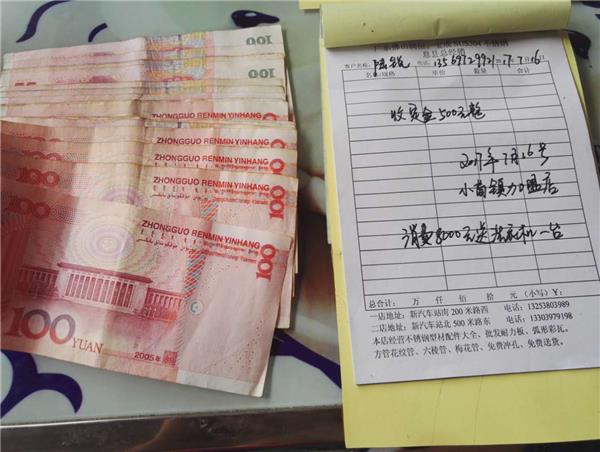 100
100
ZHONGGUO RENMIN YINHANG
ZHONGGUO RENMIN YINHANG
100
ZHONGGUO RENMIN YINHANG
100
ZHONGGUO RENMIN YINHANG
100
100
YUAN
2005年
息县总经销
客户名称: 电话: 13569729921 17.7.16
名称/规格 单价 数量 合计
收资金500元整
2017年7月16号
小茴镇加盟店
消费8000元送 机一台
总合计: 万 仟 佰 拾 元 (小写)¥:
一店地址: 新汽车站南 200 米路西 电话: 13253803989
二店地址: 新汽车站北 500 米路东 电话: 13303979198
本店经营不锈钢型材配件大全、批发耐力板、弧形彩瓦、
方管花纹管、六棱管、梅花管、免费冲孔、免费送货。